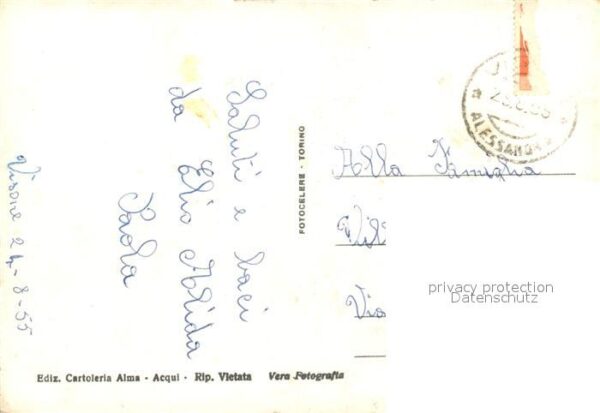 Visone 24-8-55
Saluti e baci
da Elio Alida
Paola
FOTOCELERE - TORINO
Alla Famiglia
Via
privacy protection
Datenschutz
Ediz. Cartoleria Alma - Acqui - Rip. Vietata Vera Fotografia